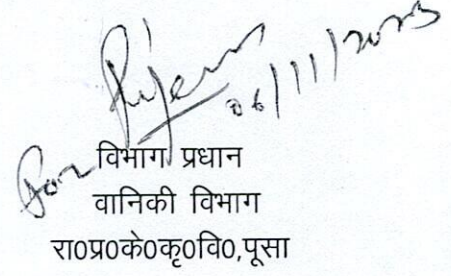 06/11/2023
For
विभाग प्रधान
वानिकी विभाग
रा0प्र0के0कृ0वि0,पूसा